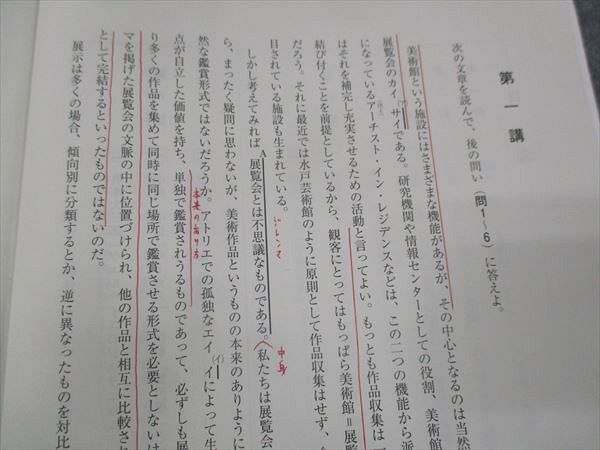 第一講
次の文章を読んで、後の問い（問1〜6）に答えよ。
美術館という施設にはさまざまな機能があるが、その中心となるのは当然
展覧会のカイサイである。研究機関や情報センターとしての役割、美術館
(ア)
になっているアーチスト・イン・レジデンスなどは、この二つの機能から派
はそれを補完し充実させるための活動と言ってよい。もっとも作品収集は一
結び付くことを前提としているから、観客にとってはもっぱら美術館＝展
だろう。それに最近では水戸芸術館のように原則として作品収集はせず、
目されている施設も生まれている。
しかし考えてみればA展覧会とは不思議なものである。私たちは展覧会
ジレンマ
中身
ら、まったく疑問に思わないが、美術作品というものの本来のありように
然な鑑賞形式ではないだろうか。アトリエでの孤独なエイイによって生
(イ)
本来のあり方
点が自立した価値を持ち、単独で鑑賞されうるものであって、必ずしも展
り多くの作品を集めて同時に同じ場所で鑑賞させる形式を必要としないは
マを掲げた展覧会の文脈の中に位置づけられ、他の作品と相互に比較さ
として完結するといったものではないのだ。
展示は多くの場合、傾向別に分類するとか、逆に異なったものを対比